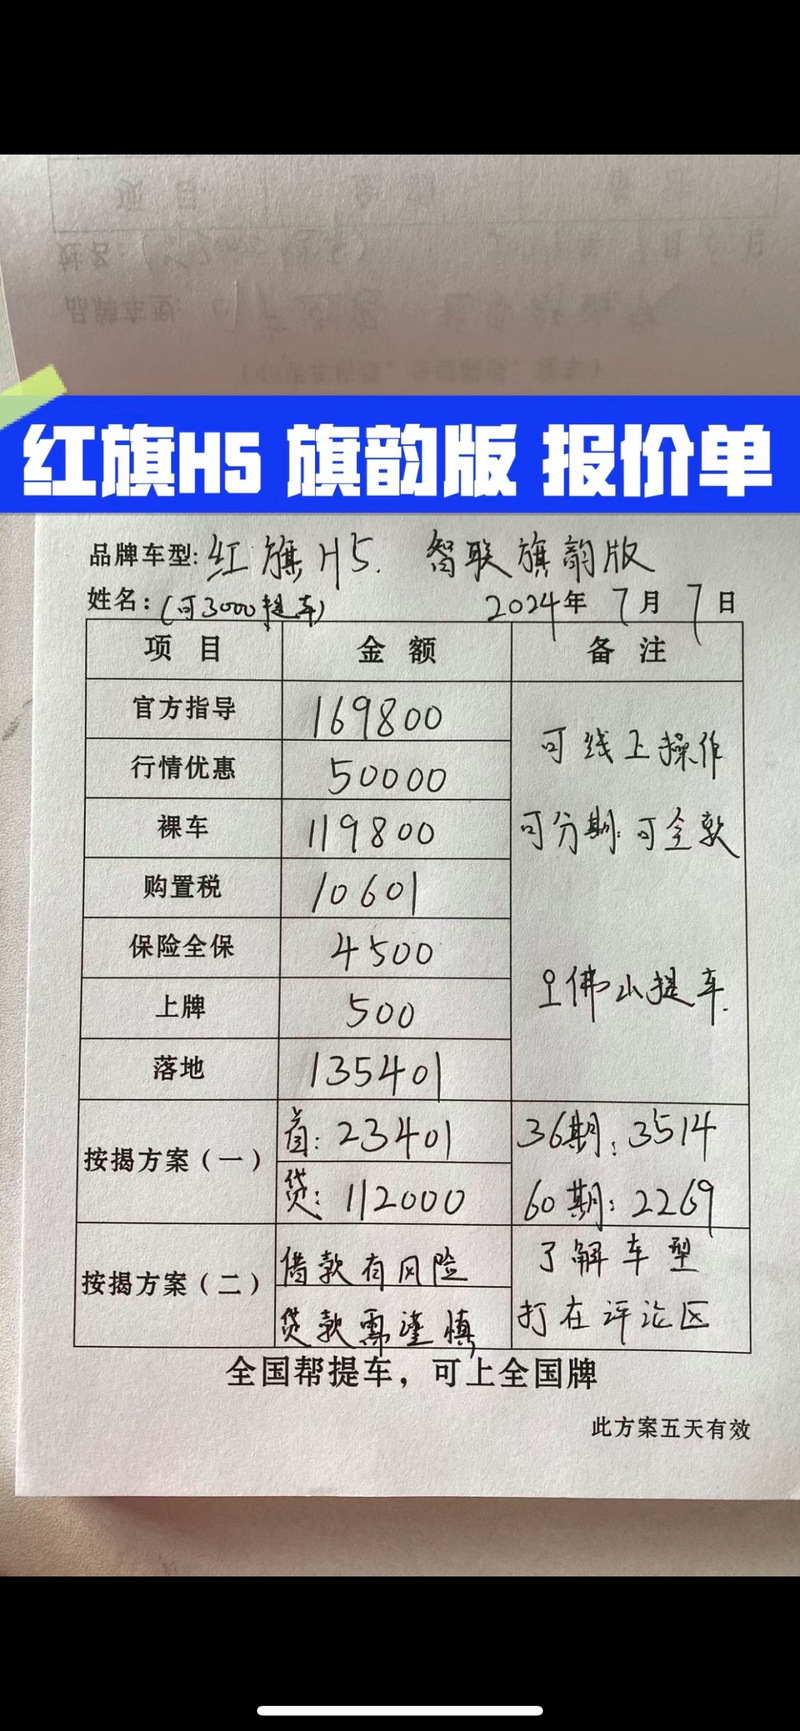 红旗H5 旗韵版 报价单
品牌车型: 红旗H5. 智联旗韵版
姓名: (可3000提车) 2024年 7月 7日
项 目 金 额 备 注
官方指导 169800
可线上操作
行情优惠 50000
裸车 119800 可分期. 可全款
购置税 10601
保险全保 4500
佛山提车.
上牌 500
落地 135401
按揭方案（一） 首: 23401 36期: 3514
贷: 112000 60期: 2269
按揭方案（二） 借款有风险 了解车型
贷款需谨慎 打在评论区
全国帮提车，可上全国牌
此方案五天有效